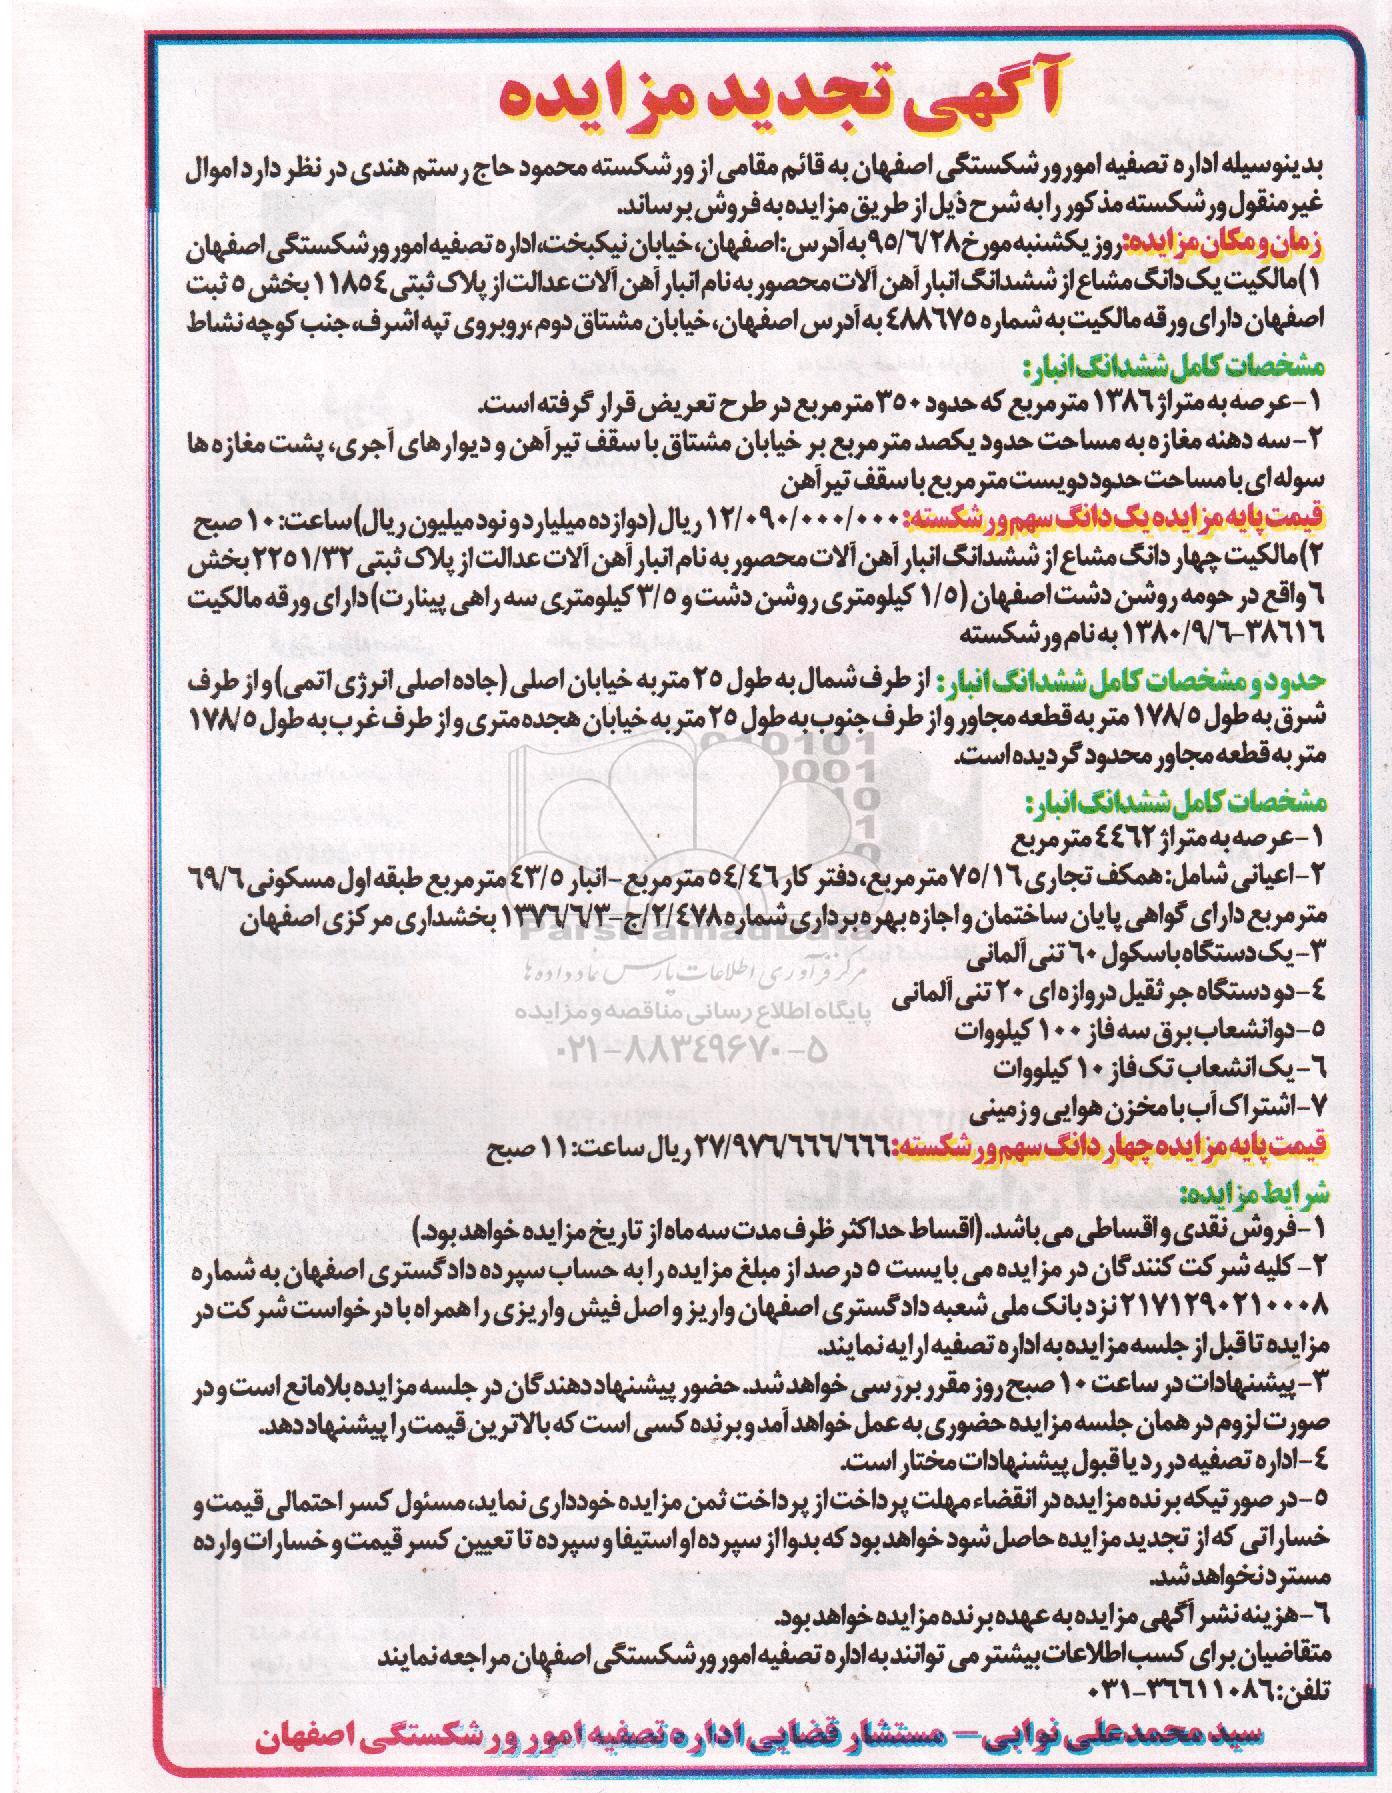 آگهی تجدید مزایده
بدینوسیله اداره تصفیه امور ورشکستگی اصفهان به قائم مقامی از ورشکسته محمود حاج رستم هندی در نظر دارد اموال
غیر منقول ورشکسته مذکور را به شرح ذیل از طریق مزایده به فروش برساند.
زمان و مکان مزایده: روز یکشنبه مورخ ۹۵/۶/۲۸ به آدرس: اصفهان، خیابان نیکبخت، اداره تصفیه امور ورشکستگی اصفهان
۱) مالکیت یک دانگ مشاع از ششدانگ انبار آهن آلات محصور به نام انبار آهن آلات عدالت از پلاک ثبتی ۱۱۸۵۴ بخش ۵ ثبت
اصفهان دارای ورقه مالکیت به شماره ۴۸۸۶۷۵ به آدرس اصفهان، خیابان مشتاق دوم، روبروی تپه اشرف، جنب کوچه نشاط
مشخصات کامل ششدانگ انبار:
۱-عرصه به متراژ ۱۳۸۶ متر مربع که حدود ۳۵۰ متر مربع در طرح تعریض قرار گرفته است.
۲-سه دهنه مغازه به مساحت حدود یکصد متر مربع بر خیابان مشتاق با سقف تیر آهن و دیوارهای آجری، پشت مغازه ها
سوله ای با مساحت حدود دویست متر مربع با سقف تیر آهن
قیمت پایه مزایده یک دانگ سهم ورشکسته: ۱۲/۰۹۰/۰۰۰/۰۰۰ ریال (دوازده میلیارد و نود میلیون ریال) ساعت: ۱۰ صبح
۲) مالکیت چهار دانگ مشاع از ششدانگ انبار آهن آلات محصور به نام انبار آهن آلات عدالت از پلاک ثبتی ۲۲۵۱/۳۲ بخش
۶ واقع در حومه روشن دشت اصفهان (۱/۵ کیلومتری روشن دشت و ۳/۵ کیلومتری سه راهی پینارت) دارای ورقه مالکیت
۳۸۶۱۶-۱۳۸۰/۹/۶ به نام ورشکسته
حدود و مشخصات کامل ششدانگ انبار: از طرف شمال به طول ۲۵ متر به خیابان اصلی (جاده اصلی انرژی اتمی) و از طرف
شرق به طول ۱۷۸/۵ متر به قطعه مجاور و از طرف جنوب به طول ۲۵ متر به خیابان هجده متری و از طرف غرب به طول ۱۷۸/۵
متر به قطعه مجاور محدود گردیده است.
مشخصات کامل ششدانگ انبار:
۱-عرصه به متراژ ۴۴۶۲ متر مربع
۲-اعیانی شامل: همکف تجاری ۷۵/۱۶ متر مربع، دفتر کار ۵۴/۴۶ متر مربع - انبار ۴۳/۵ متر مربع طبقه اول مسکونی ۶۹/۶
متر مربع دارای گواهی پایان ساختمان و اجازه بهره برداری شماره ۲/۴۷۸/ج-۱۳۷۶/۶/۳ بخشداری مرکزی اصفهان
۳-یک دستگاه باسکول ۶۰ تنی آلمانی
۴-دو دستگاه جرثقیل دروازه ای ۲۰ تنی آلمانی
۵-دو انشعاب برق سه فاز ۱۰۰ کیلووات
۶-یک انشعاب تک فاز ۱۰ کیلووات
۷-اشتراک آب با مخزن هوایی و زمینی
قیمت پایه مزایده چهار دانگ سهم ورشکسته: ۲۷/۹۷۶/۶۶۶/۶۶۶ ریال ساعت: ۱۱ صبح
شرایط مزایده:
۱-فروش نقدی و اقساطی می باشد. (اقساط حداکثر ظرف مدت سه ماه از تاریخ مزایده خواهد بود.)
۲-کلیه شرکت کنندگان در مزایده می بایست ۵ درصد از مبلغ مزایده را به حساب سپرده دادگستری اصفهان به شماره
۲۱۷۱۲۹۰۲۱۰۰۰۸ نزد بانک ملی شعبه دادگستری اصفهان واریز و اصل فیش واریزی را همراه با درخواست شرکت در
مزایده تا قبل از جلسه مزایده به اداره تصفیه ارایه نمایند.
۳-پیشنهادات در ساعت ۱۰ صبح روز مقرر بررسی خواهد شد. حضور پیشنهاد دهندگان در جلسه مزایده بلامانع است و در
صورت لزوم در همان جلسه مزایده حضوری به عمل خواهد آمد و برنده کسی است که بالاترین قیمت را پیشنهاد دهد.
۴-اداره تصفیه در رد یا قبول پیشنهادات مختار است.
۵-در صورتیکه برنده مزایده در انقضاء مهلت پرداخت از پرداخت ثمن مزایده خودداری نماید، مسئول کسر احتمالی قیمت و
خساراتی که از تجدید مزایده حاصل شود خواهد بود که بدوا از سپرده او استیفا و سپرده تا تعیین کسر قیمت و خسارات وارده
مسترد نخواهد شد.
۶-هزینه نشر آگهی مزایده به عهده برنده مزایده خواهد بود.
متقاضیان برای کسب اطلاعات بیشتر می توانند به اداره تصفیه امور ورشکستگی اصفهان مراجعه نمایند
تلفن: ۳۶۶۱۱۰۸۶-۰۳۱
سید محمدعلی نوابی - مستشار قضایی اداره تصفیه امور ورشکستگی اصفهان
ParsNamadData
مرکز فرآوری اطلاعات پارس نماد داده ها
پایگاه اطلاع رسانی مناقصه و مزایده
۰۲۱-۸۸۳۴۹۶۷۰-۵